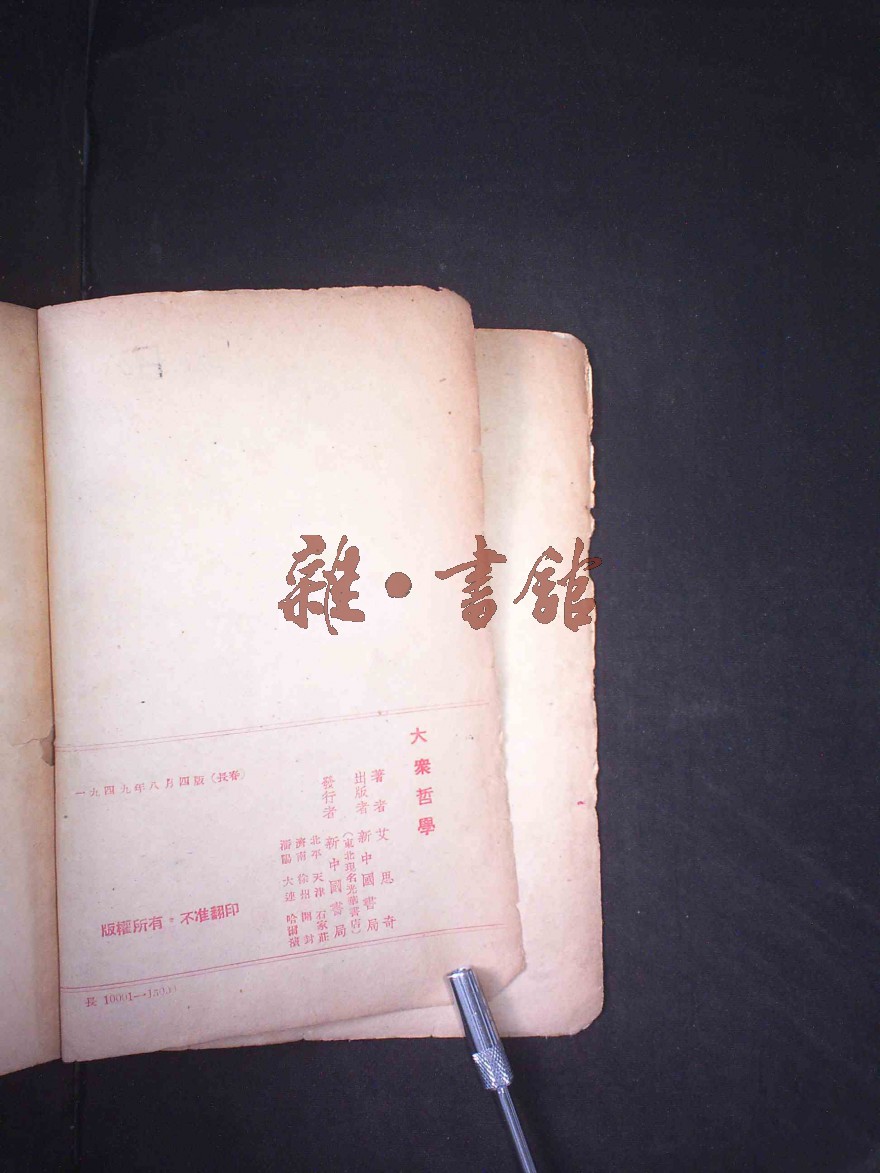 雜·書館
大衆哲學
著者 艾思奇
出版者 新中國書局
(東北現名光華書店)
發行者 新中國書局
北平 天津 石家莊
濟南 徐州 開封
瀋陽 大連 哈爾濱
一九四九年八月四版(長春)
版權所有·不准翻印
長 10001—15000